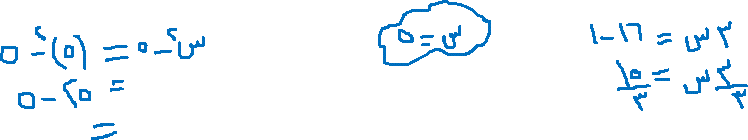 ٣س = ١٦ - ١
٣س/٣ = ١٥/٣
س = ٥
س^٢ - ٥ = (٥)^٢ - ٥
= ٢٥ - ٥
=